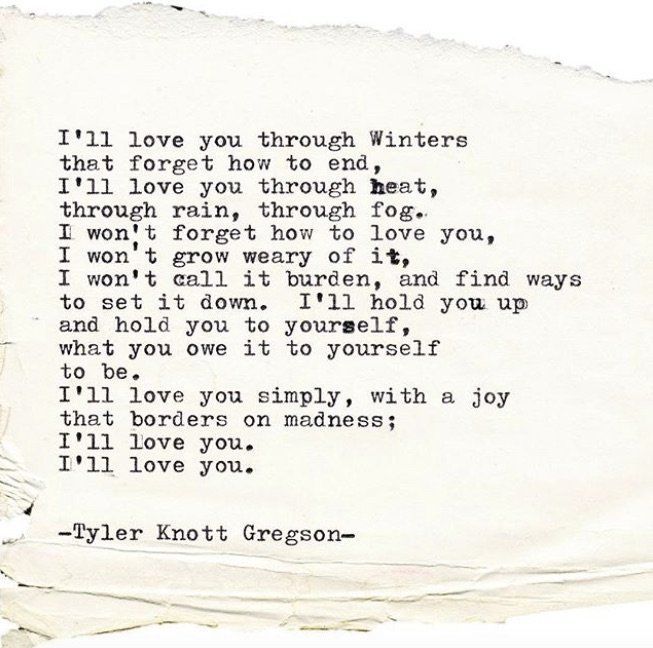 I'll love you through Winters
that forget how to end,
I'll love you through heat,
through rain, through fog.
I won't forget how to love you,
I won't grow weary of it,
I won't call it burden, and find ways
to set it down.  I'll hold you up
and hold you to yourself,
what you owe it to yourself
to be.
I'll love you simply, with a joy
that borders on madness;
I'll love you.
I'll love you.
-Tyler Knott Gregson-